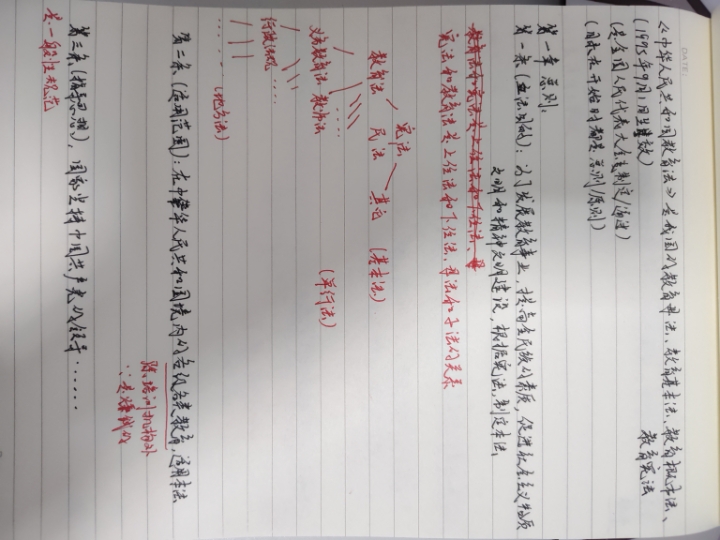 《中华人民共和国教育法》是我国的教育母法、教育基本法、教育根本法、
教育宪法
(1995年9月1日生效)
(是全国人民代表大会制定/通过)
(国家在开始时都是总则/原则)
第一章 总则.
第一条(立法目的):为了发展教育事业,提高全民族的素质,促进社会主义物质
文明和精神文明建设,根据宪法,制定本法.
教育法和宪法是上位法和下位法、母
宪法和教育法是上位法和下位法,母法和子法的关系
宪法
教育法 民法 其它 (基本法)
义务教育法 教师法 ..... (单行法)
行政法规 ....
...... (地方法)
第二条(适用范围):在中华人民共和国境内的各级各类教育,适用本法
除培训机构外
∵是赚钱的
第三条(指导思想),国家坚持中国共产党的领导......
是一般性规范